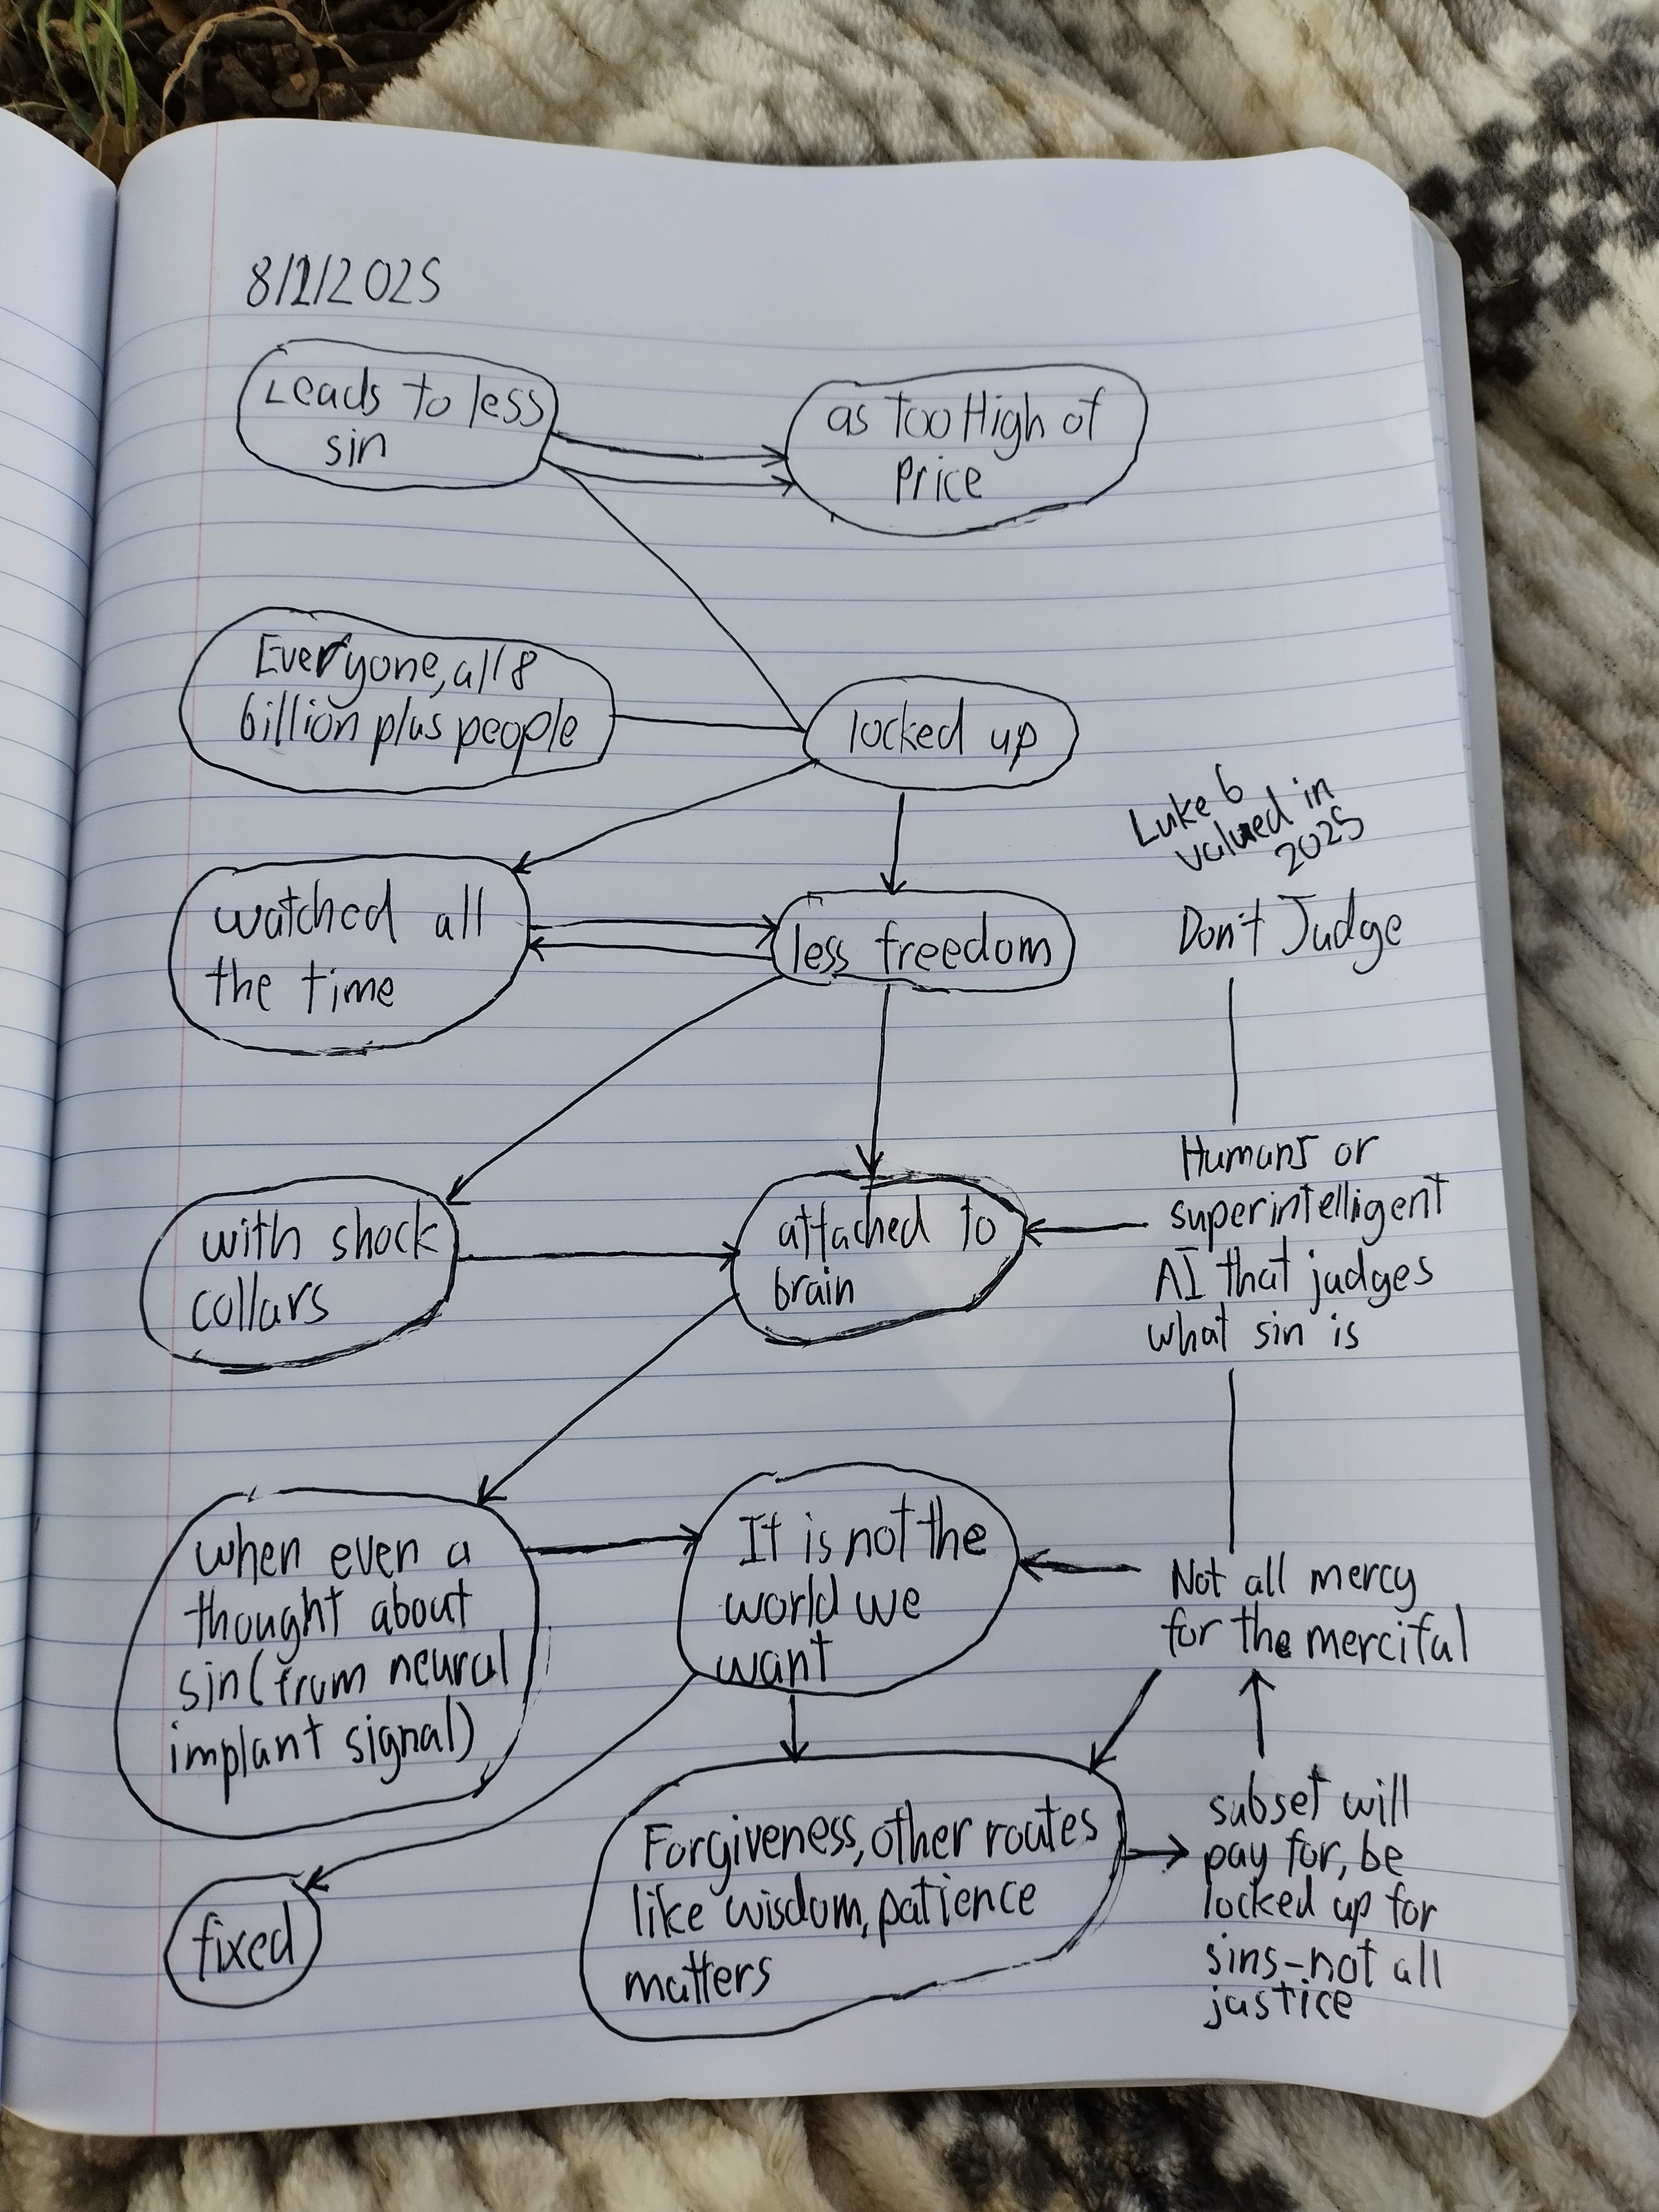 8/1/2025
Leads to less
sin
as Too High of
Price
Everyone, all 8
billion plus people
locked up
Luke 6
valued in
2025
Don't Judge
watched all
the time
less freedom
Humans or
superintelligent
AI that judges
what sin is
with shock
collars
attached to
brain
when even a
thought about
sin (from neural
implant signal)
It is not the
world we
want
Not all mercy
for the merciful
Forgiveness, other routes
like wisdom, patience
matters
subset will
pay for, be
locked up for
sins-not all
justice
fixed